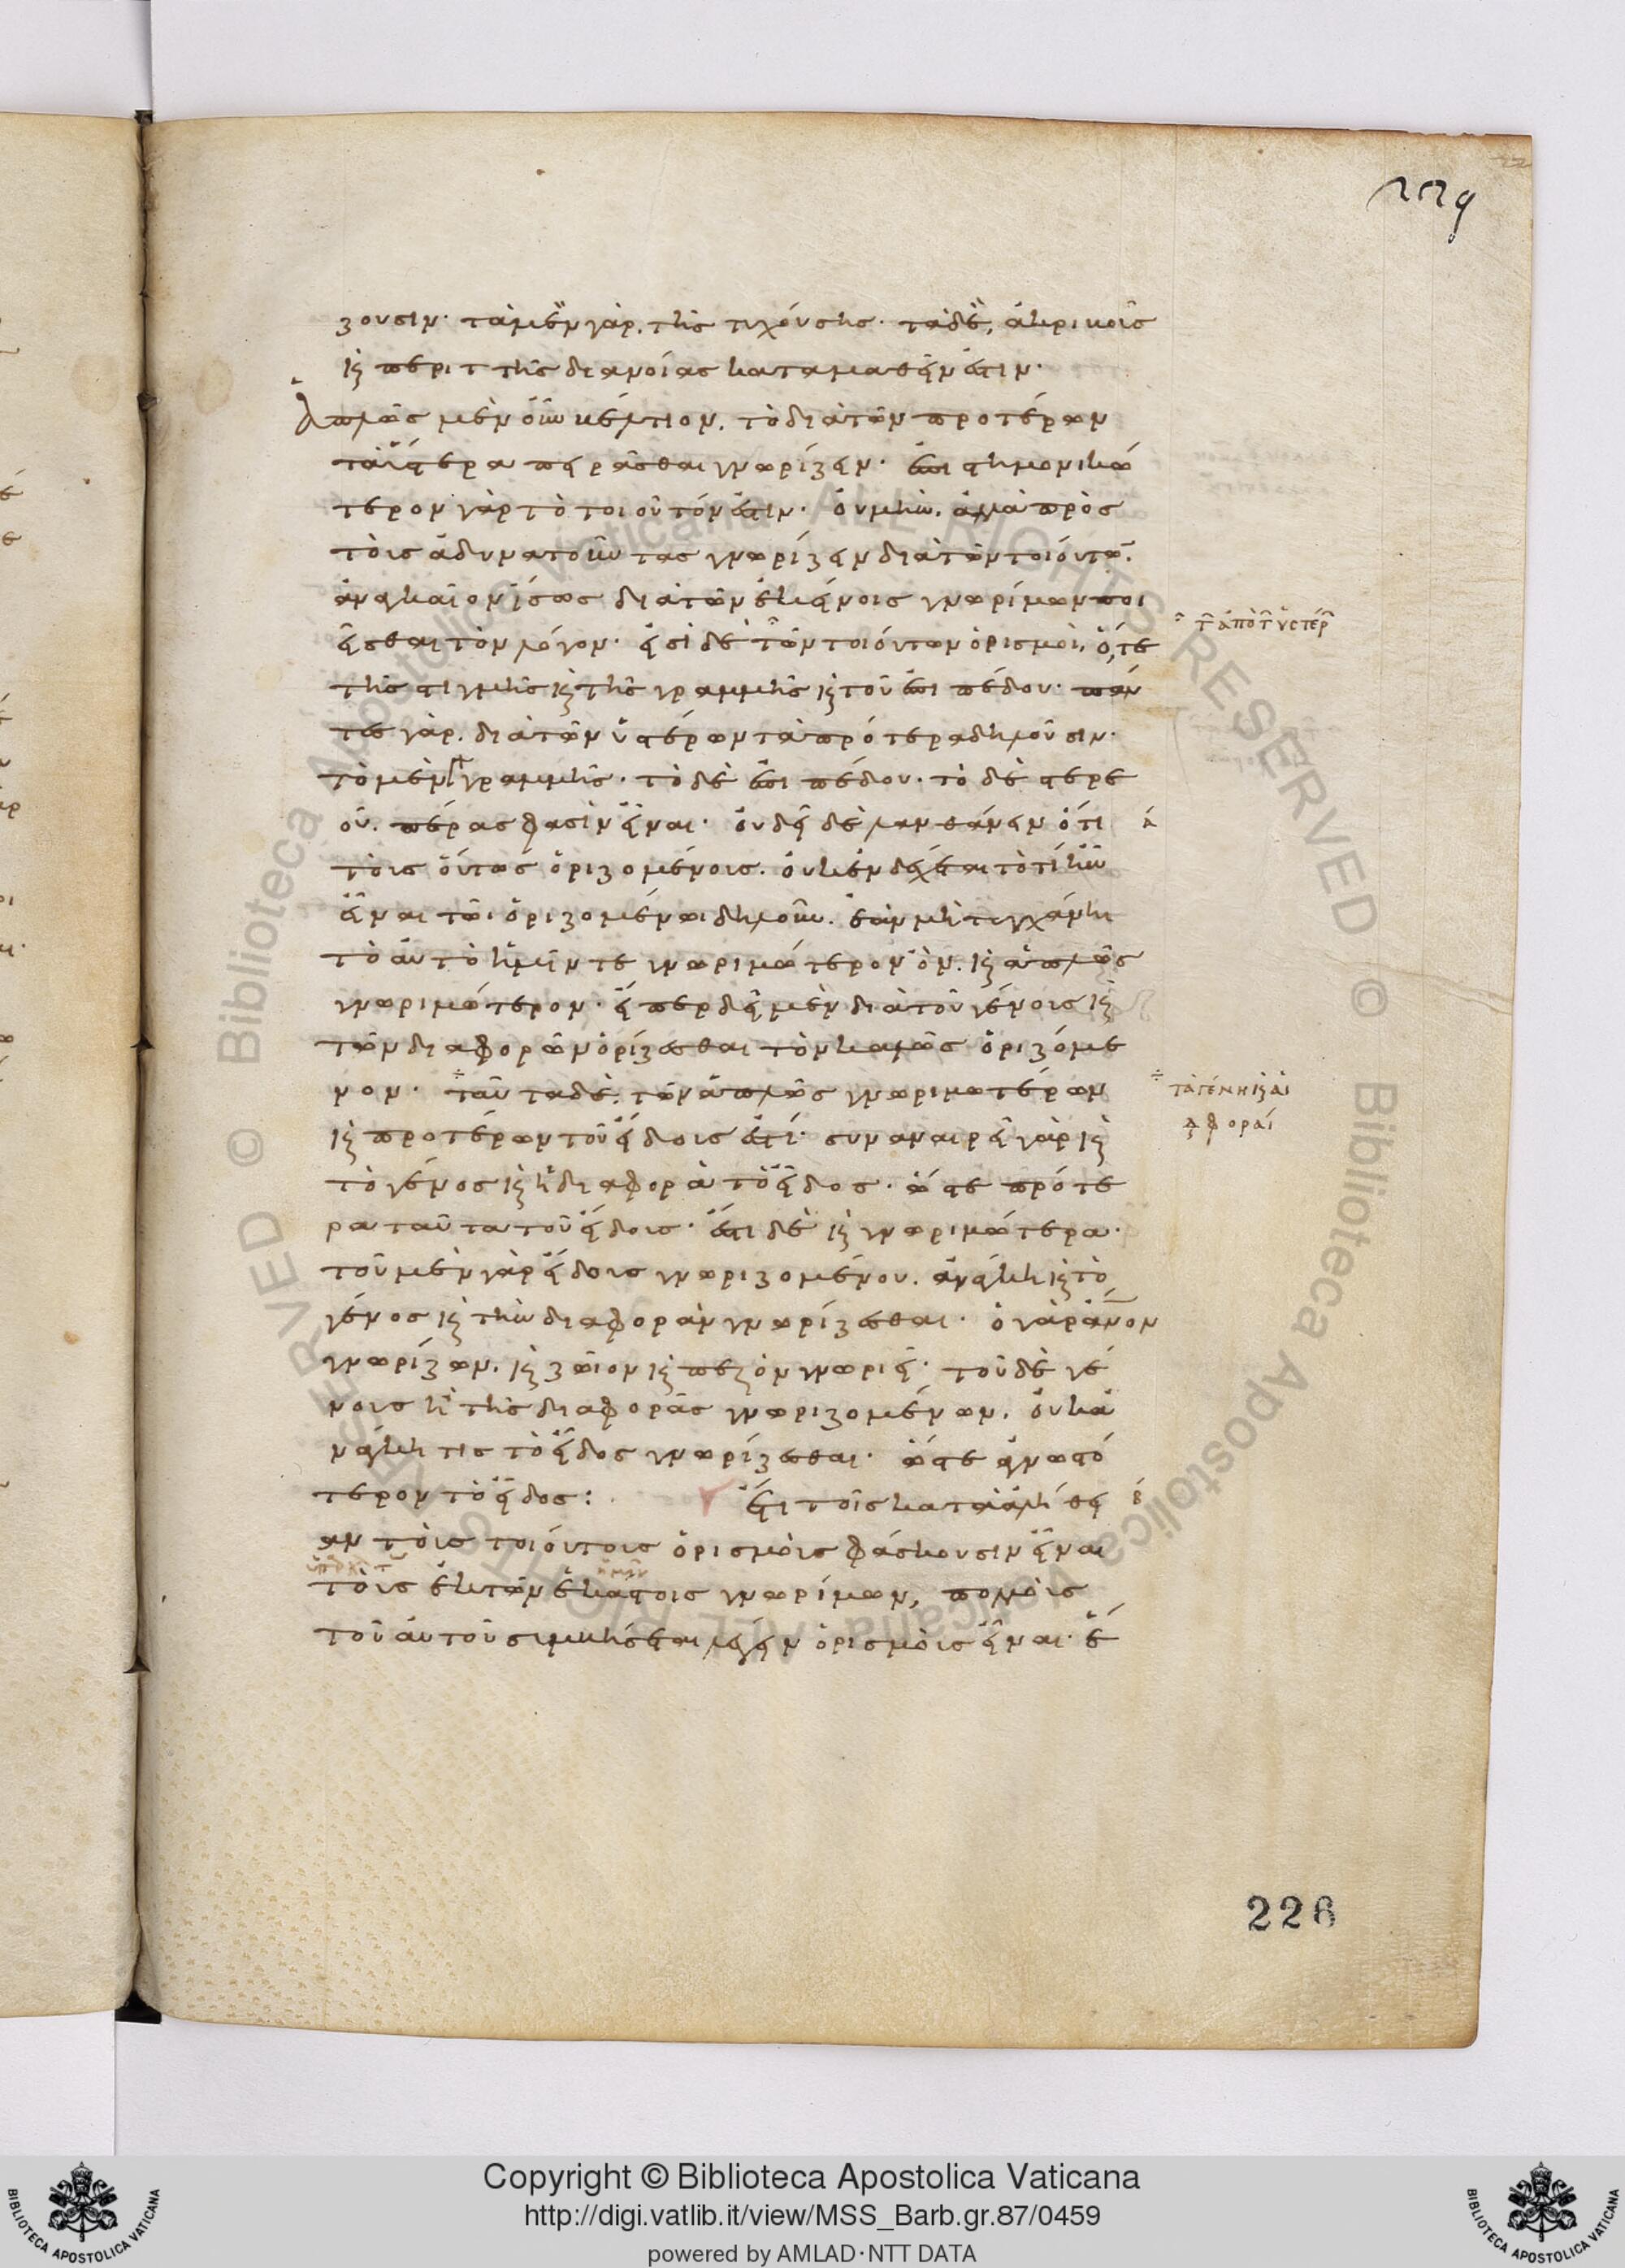 229
ζουσιν· τὰ μὲν γὰρ, τῆς τυχούσης· τὰ δὲ, ἀκριβοῦς
καὶ περιττῆς διανοίας καταμαθεῖν ἐστιν·
Ἁπλῶς μὲν οὖν βέλτιον, τὸ διὰ τῶν προτέρων
τὰ ὕστερα πειρᾶσθαι γνωρίζειν· ἐπιστημονικώ
τερον γὰρ τὸ τοιοῦτόν ἐστιν· οὐ μὴν, ἀλλὰ πρὸς
τοὺς ἀδυνατοῦντας γνωρίζειν διὰ τῶν τοιούτων·
ἀναγκαῖον ἴσως διὰ τῶν ἐκείνοις γνωρίμων ποι
εῖσθαι τὸν λόγον· εἰσὶ δὲ τῶν τοιούτων ὁρισμοὶ, ὅ,τε
τῆς στιγμῆς καὶ τῆς γραμμῆς καὶ τοῦ ἐπιπέδου· πάν
τες γὰρ, διὰ τῶν ὑστέρων τὰ πρότερα δηλοῦσιν·
τὸ μὲν γραμμῆς· τὸ δὲ ἐπιπέδου· τὸ δὲ στερε
οῦ, πέρας φασὶν εἶναι· οὐ δεῖ δὲ λανθάνειν ὅτι
τοὺς οὕτως ὁριζομένους, οὐκ ἐνδέχεται τὸ τί ἦν
εἶναι τῶι ὁριζομένωι δηλοῦν, ἐὰν μὴ τυγχάνηι
τὸ αὐτὸ ἡμῖν τε γνωριμώτερον ὂν, καὶ ἁπλῶς
γνωριμώτερον· εἴπερ δεῖ μὲν διὰ τοῦ γένους καὶ
τῶν διαφορῶν ὁρίζεσθαι τὸν καλῶς ὁριζόμε
νον· ταῦτα δὲ, τῶν ἁπλῶς γνωριμωτέρων
καὶ προτέρων τοῦ εἴδους ἐστί· συναναιρεῖ γὰρ καὶ
τὸ γένος καὶ ἡ διαφορὰ τὸ εἶδος· ὥστε πρότε
ρα ταῦτα τοῦ εἴδους· ἔστι δὲ καὶ γνωριμώτερα·
τοῦ μὲν γὰρ εἴδους γνωριζομένου, ἀνάγκη καὶ τὸ
γένος καὶ τὴν διαφορὰν γνωρίζεσθαι· ὁ γὰρ ἄνον
γνωρίζων, καὶ ζῶιον καὶ πεζὸν γνωρίζει· τοῦ δὲ γέ
νους ἢ τῆς διαφορᾶς γνωριζομένων, οὐκ ἀ
νάγκη τις τὸ εἶδος γνωρίζεσθαι· ὥστε ἀγνωστό
τερον τὸ εἶδος: ἔτι τοῖς κατ' ἀλήθει
αν τοὺς τοιούτους ὁρισμοὺς φάσκουσιν εἶναι
τοὺς ἐκ τῶν ἑκάστοις γνωρίμων, πολλοὺς
τοῦ αὐτοῦ συμβήσεται λέγειν ὁρισμοὺς εἶναι· ἕ
τῶν ἀπὸ τῶν ὑστέρων
α
τὰ γένη καὶ αἱ
διαφοραί
β
226
Copyright © Biblioteca Apostolica Vaticana
http://digi.vatlib.it/view/MSS_Barb.gr.87/0459
powered by AMLAD·NTT DATA